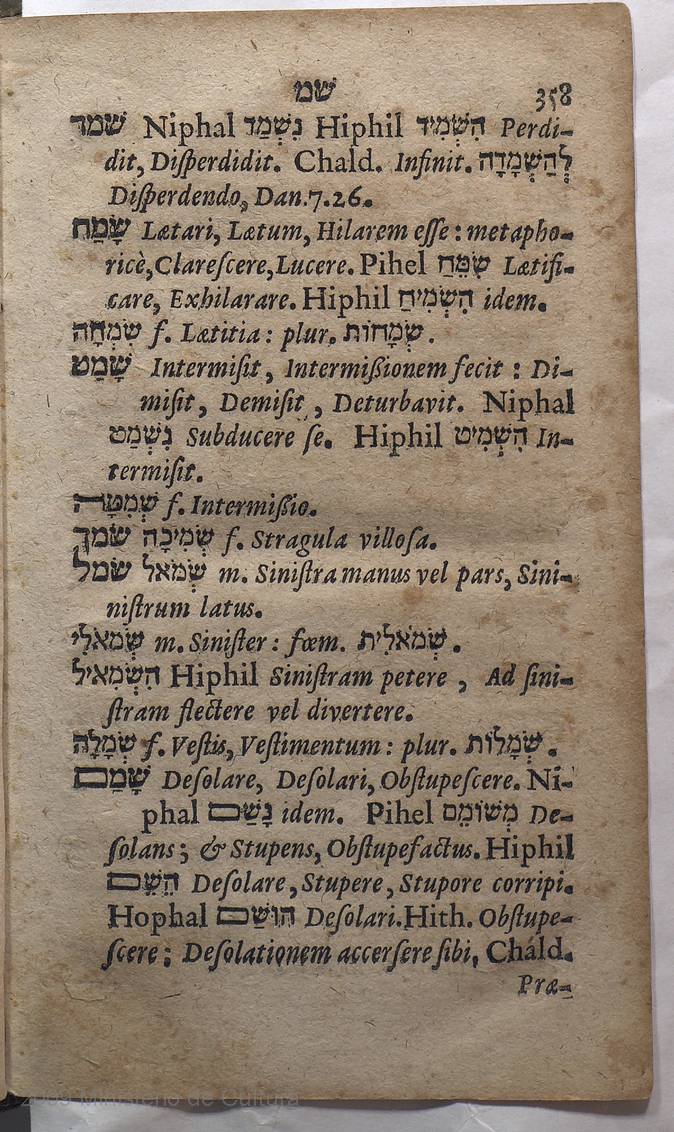 שמ 358
שמד Niphal נִשְׁמַד Hiphil הִשְׁמִיד Perdi-
dit, Diſperdidit. Chald. Infinit. לְהַשְׁמָדָה
Diſperdendo, Dan.7.26.
שָׂמַח Lætari, Lætum, Hilarem eſſe: metapho-
ricè, Clareſcere, Lucere. Pihel שִׂמֵּחַ Lætifi-
care, Exhilarare. Hiphil הִשְׂמִיחַ idem.
שִׂמְחָה f. Lætitia: plur. שְׂמָחוֹת.
שָׁמַט Intermiſit, Intermiſsionem fecit: Di-
miſit, Demiſit, Deturbavit. Niphal
נִשְׁמַט Subducere ſe. Hiphil הִשְׁמִיט In-
termiſit.
שְׁמִטָּה f. Intermiſsio.
שמך שְׂמִיכָה f. Stragula villoſa.
שמל שְׂמֹאל m. Siniſtra manus vel pars, Sini-
niſtrum latus.
שְׂמֹאלִי m. Siniſter: fœm. שְׂמֹאלִית.
הִשְׂמִאיל Hiphil Siniſtram petere, Ad ſini-
ſtram flectere vel divertere.
שִׂמְלָה f. Veſtis, Veſtimentum: plur. שְׂמָלוֹת.
שָׁמַם Deſolare, Deſolari, Obſtupeſcere. Ni-
phal נָשַׁם idem. Pihel מְשׁוֹמֵם De-
ſolans; & Stupens, Obſtupefactus. Hiphil
הֵשֵׁם Deſolare, Stupere, Stupore corripi.
Hophal הוּשַׁם Deſolari. Hith. Obſtupe-
ſcere: Deſolationem accerſere ſibi, Cháld.
Præ-
2009 Ministerio de Cultura